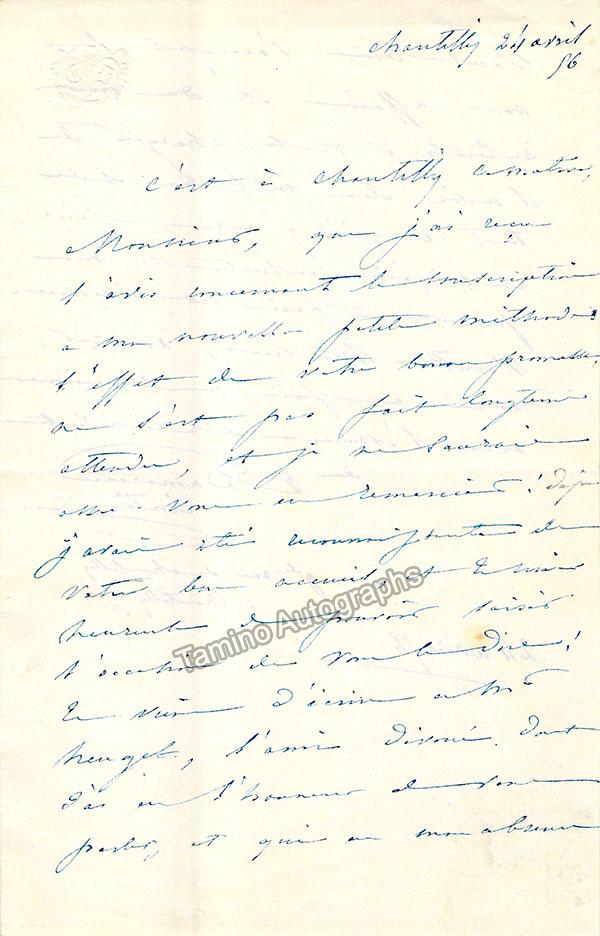 Chantilly 24 avril
56
C'est à Chantilly ce matin,
Monsieur, que j'ai reçu
l'avis concernant la souscription
a ma nouvelle petite méthode:
l'effet de votre bonne promesse,
ne s'est pas fait longtems
attendre, et je ne saurais
assez vous en remercier! déjà
j'avais été reconnaissante de
votre bon accueil, et je suis
heureuse de pouvoir saisir
l'occasion de vous le dire!
Je viens d'écrire a Mr
heugel, l'ami dévoué dont
j'ai eu l'honneur de vous
parler, et qui en mon absence
Tamino Autographs